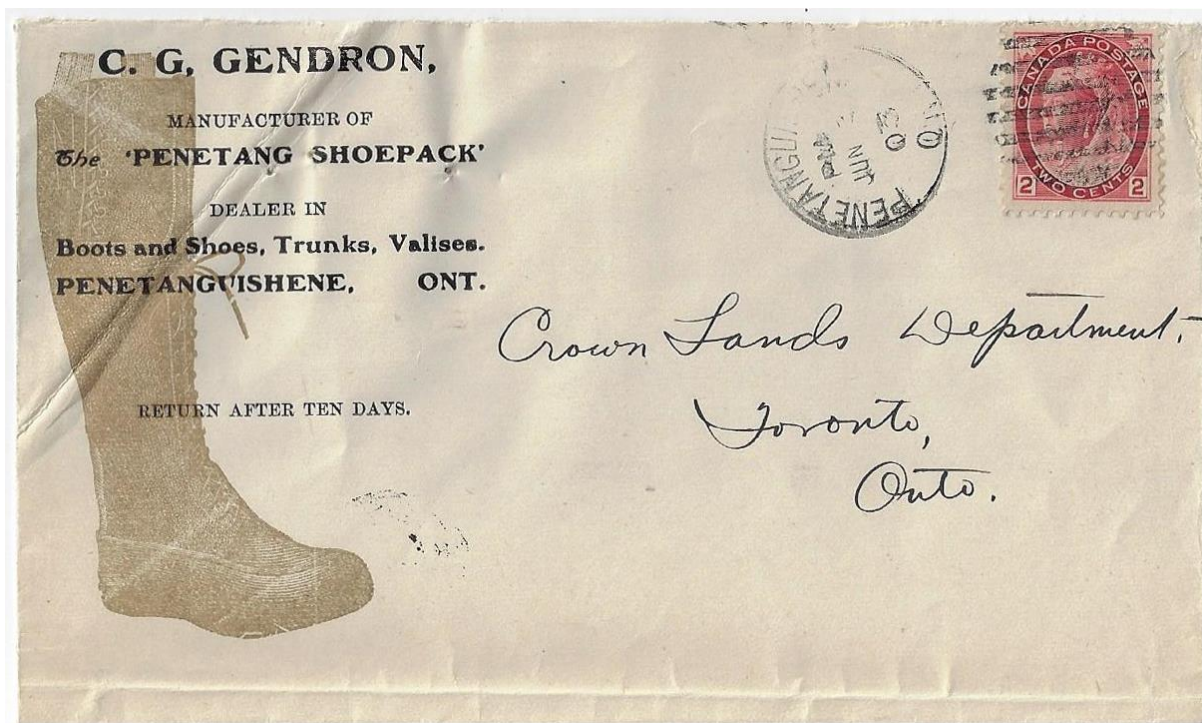 C. G. GENDRON,
MANUFACTURER OF
The 'PENETANG SHOEPACK'
DEALER IN
Boots and Shoes, Trunks, Valises.
PENETANGUISHENE, ONT.
RETURN AFTER TEN DAYS.
PM
JUN
03
ONT
CANADA POSTAGE
TWO CENTS
2 2
Crown Lands Department,
Toronto,
Onto.